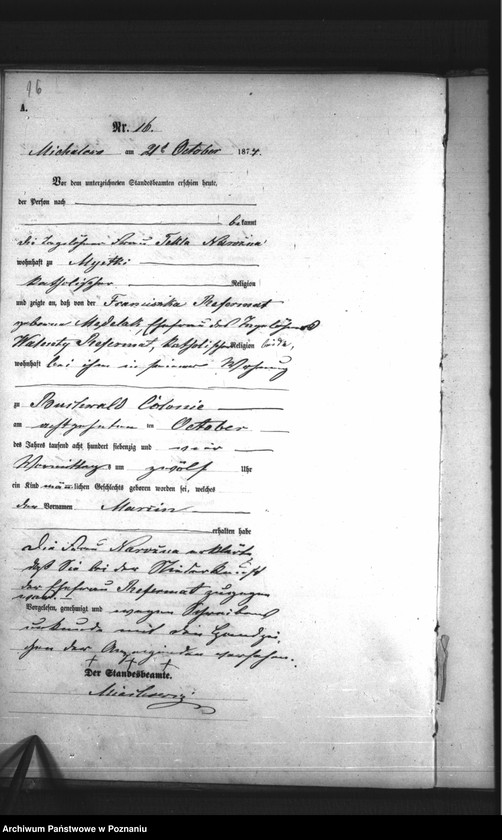 96
A.
Nr. 16.
Michalowo am 21t October 1874.
Vor dem unterzeichneten Standesbeamten erschien heute,
der Person nach
bekannt
die Tagelöhner Frau Tekla
wohnhaft zu
katholischer Religion
und zeigte an, daß von der Franciszka Reformat
geborne Ehefrau des Tagelöhners
Reformat, katholischer Religion beide,
wohnhaft bei ihm in seiner Wohnung
zu Colonie
am achtzehnten ten October
des Jahres tausend acht hundert siebenzig und vier
Vormittag um zwölf Uhr
ein Kind männlichen Geschlechts geboren worden sei, welches
den Vornamen Marcin
erhalten habe
Die Frau erklärte,
daß Sie bei der Niederkunft
der Ehefrau Reformat zugegen
war.
Vorgelesen, genehmigt und wegen Schreibens
unkunde mit den Handzei
chen der versehen.
+ + +
Der Standesbeamte.
Archiwum Państwowe w Poznaniu